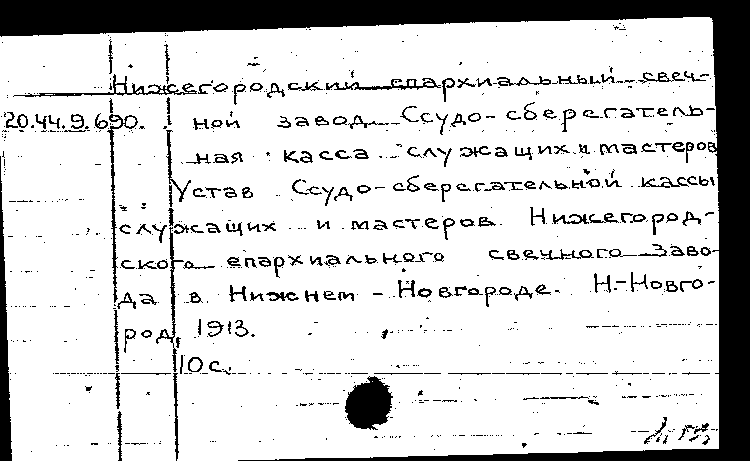 Нижегородский епархиальный свеч-
20.44.9.690. ной завод. Ссудо-сберегатель-
ная касса служащих и мастеров
Устав Ссудо-сберегательной кассы
служащих и мастеров Нижегород-
ского епархиального свечного заво-
да в Нижнем-Новгороде. Н.-Новго-
род, 1913.
10 с.